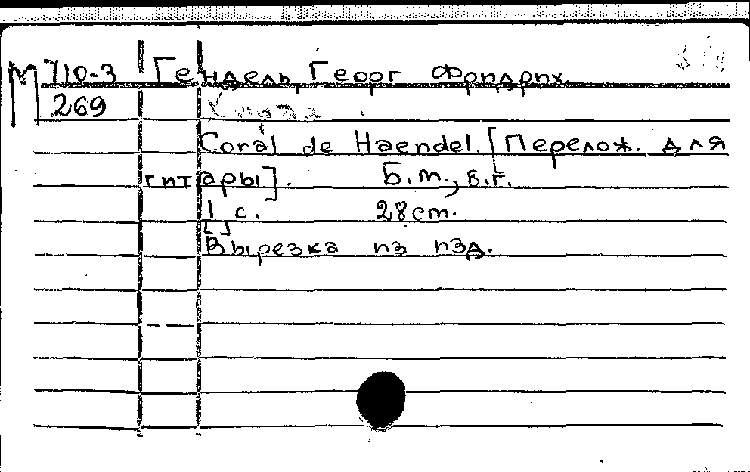 М 710-3 Гендель, Георг Фридрих
269
Coral de Haendel. [Перелож. для
гитары]. Б.м., б.г.
1 с. 28cm.
[ ]
Вырезка из изд.